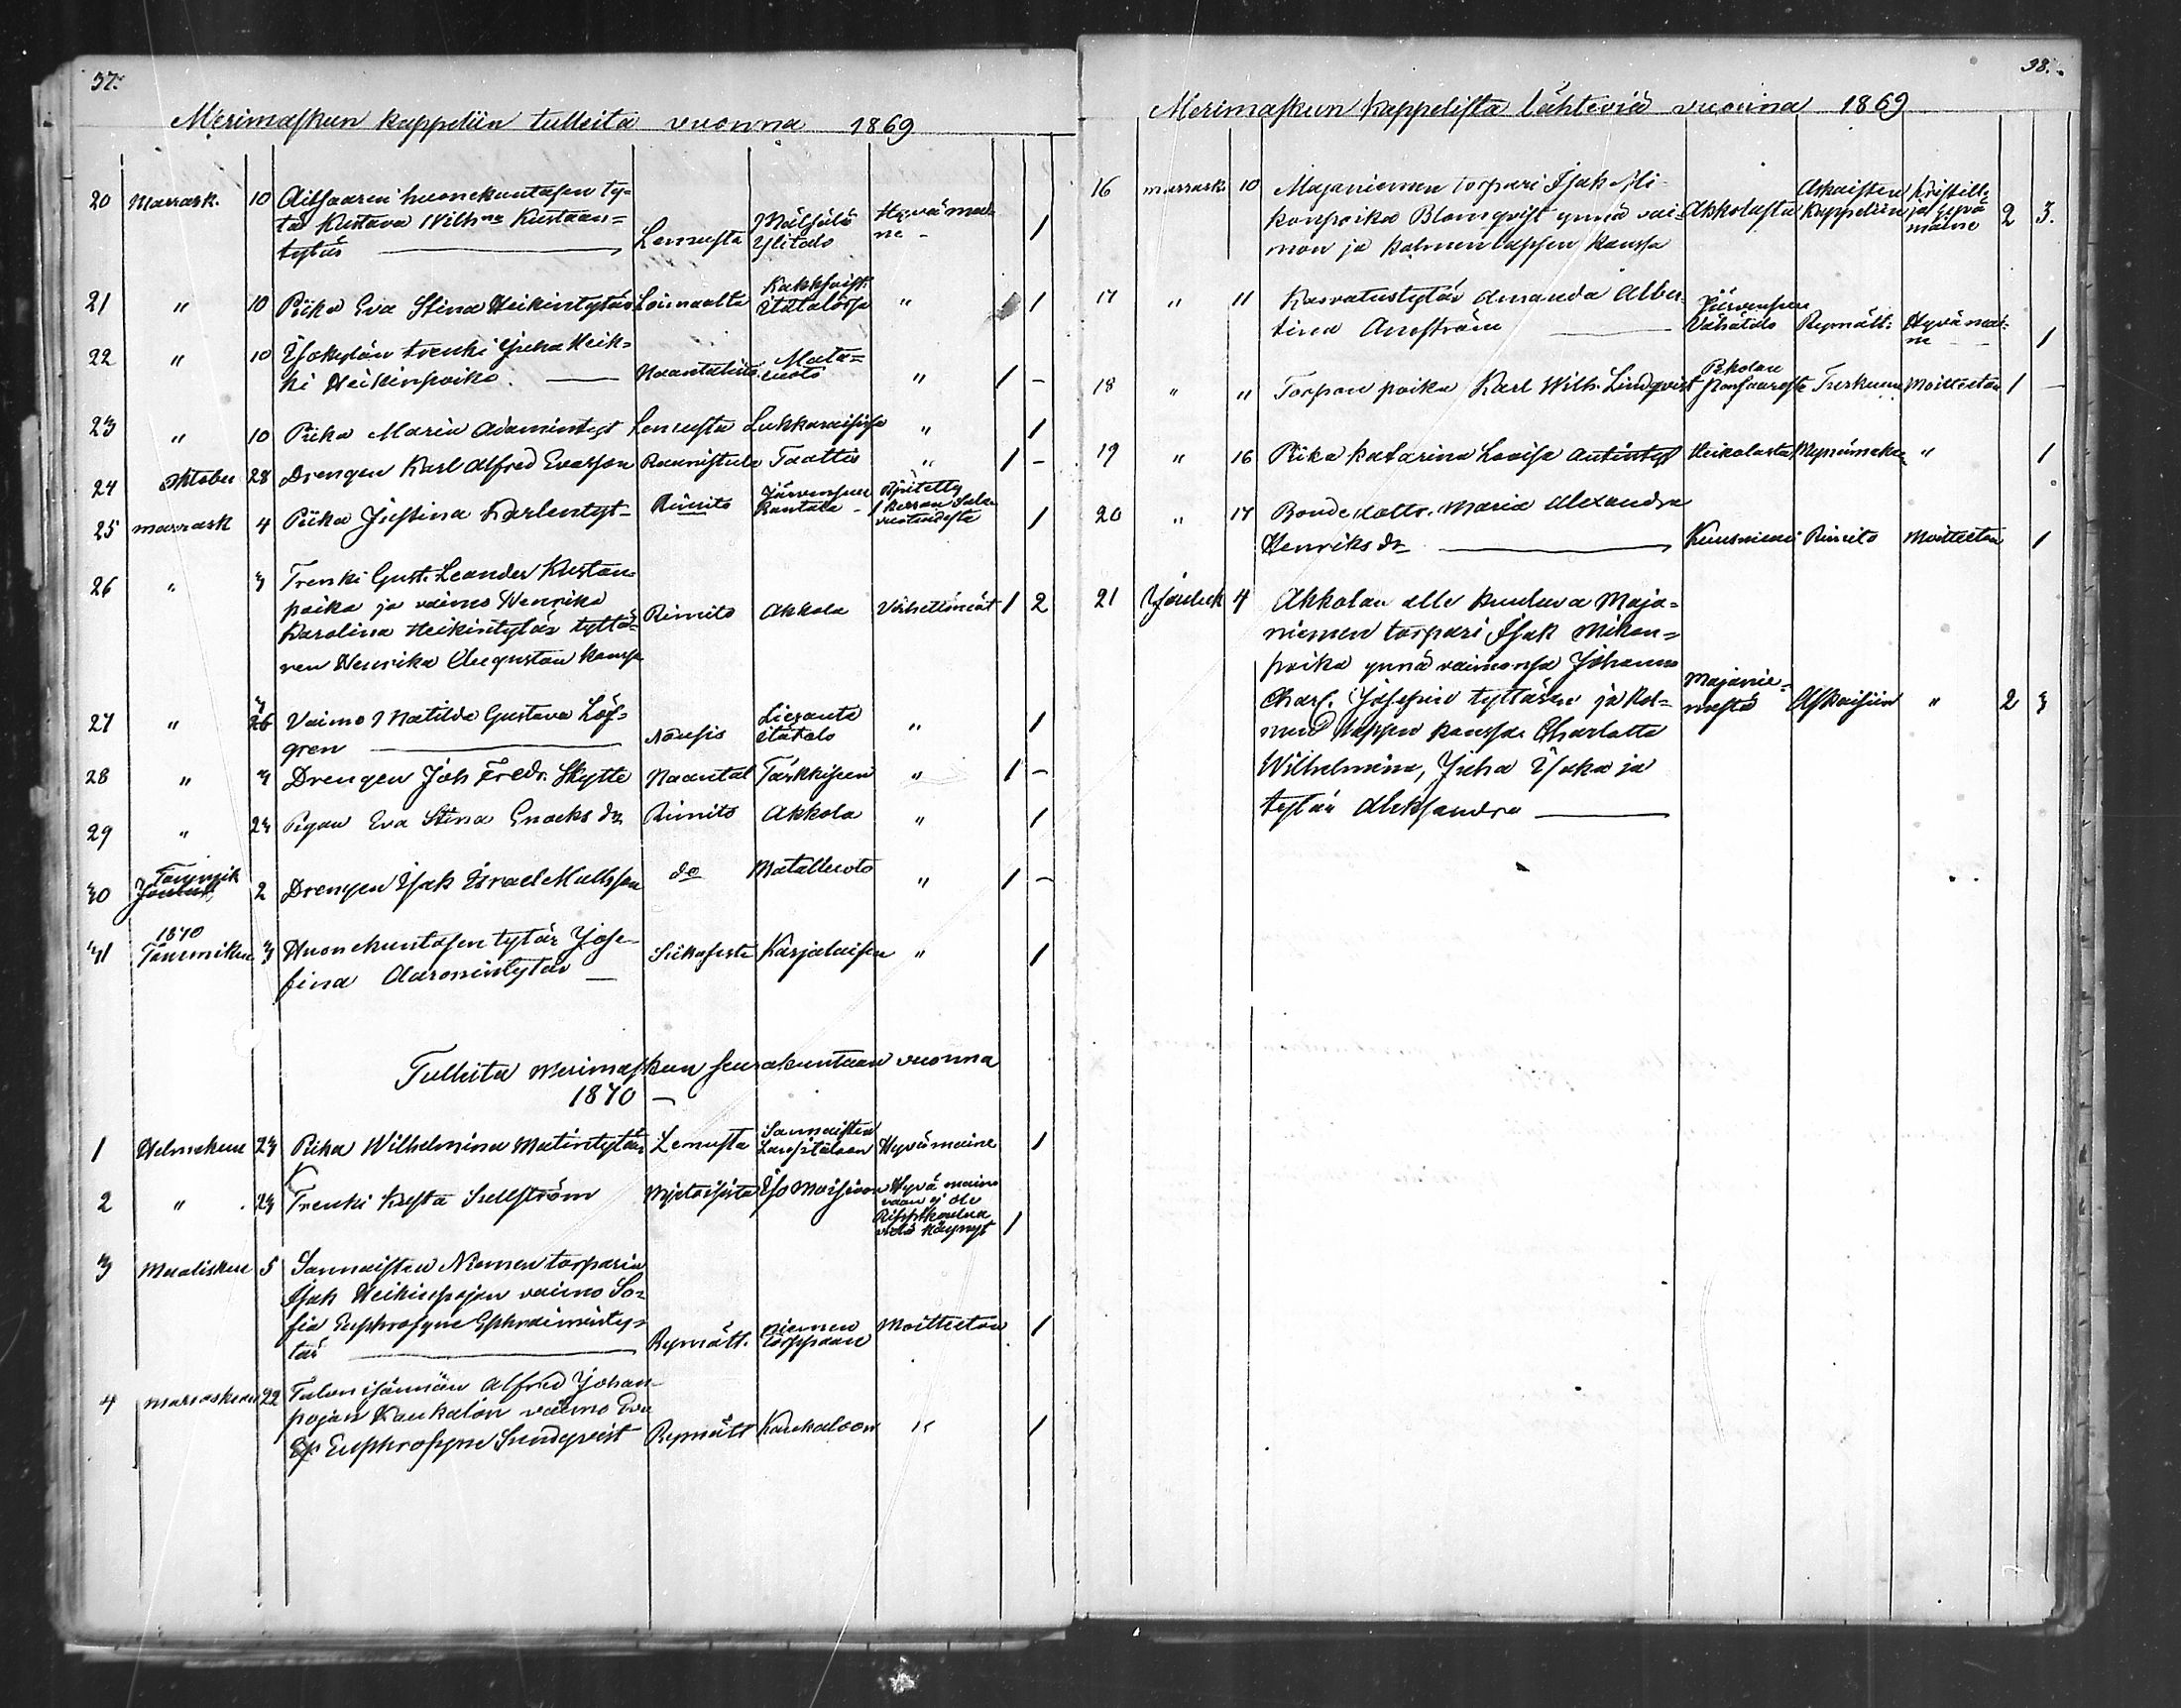 37.
Merimaskun kappeliin tulleita vuonna 1869
20 Marrask. 10 huonekuntasen ty=
tär Kustava Wilhna Kustaan=
tytär Lemusta Ylitalo Hyvämai=
ne - 1
21 " 10 Piika Eva Stina Heikintytär Itätalossa " 1
22 " 10 trenki Juha Heik=
ki Heikinpoika. Naantalista Mata=
luoto " 1 -
23 " 10 Piika Maria Adamintyt Lemusta " 1
24 Oktober 28 Drengen Karl Alfred Evasson Taattis " 1 -
25 marrask 4 Piika Justina Karlentyt Rimito Järvenpään
Rantala - 1
26 " 3 Trenki Gust. Leander Kustan=
poika ja vaimo Henrika
Karolina Heikintytär tyttä=
ren Henrika Augustan kanssa Rimito Akkola 1 2
27 " 26 Vaimo Matilda Gustava Löf=
gren Nousis Itätalo " 1
28 " 3 Drengen Joh Fredr. Skytte Naantal " 1 -
29 " 23 Pigan Eva Stina Enoks dr Rimito Akkola " 1
30 Tammik 2 Drengen Isak Israel Mattsson do Mataluoto " 1 -
1870
31 Tammikuu 3 Huonekuntasen tytär Jose=
fina Aaronintytär Karjalaisen " 1
Tulleita Merimaskun seurakuntaan vuonna
1870 -
1 Helmekuu 23 Piika Wilhelmina Matintytär Lemusta Sannaisten Hyvämaine 1
2 " 23 Trenki Kusta Sullström Mietoisista Iso Moision Hyvä maine
vaan ej ole
Rippikoulua
vielä käynyt 1
3 Maaliskuu 5 Sannaisten Niemen torparin
Isak Heikinpojan vaimo So=
fia Euphrosyne Ephraiminty=
tär Rymätt. niemen
torppaan Moitteeton 1
4 marraskuu 22 Talon isännän Alfred Johan=
pojan Kaukalon vaimo Eva
Euphrosyne Sundqvist Rymätt Kaukaloon " 1
38.
Merimaskun kappelista lähteviä vuonna 1869
16 marrask. 10 Majaniemen torpari Isak Mi=
konpoika Blomqvist ynnä vai=
mon ja kolmen lapsen kanssa Akkolasta Askaisten
kappeliin Kristill.
ja hyvä
maine 2 3.
17 " 11 Kasvatustytär Amanda Alber=
tina Järvenpään
Vähätalo Rymätt. Hyvämai=
ne 1
18 " " Torpan poika Karl Wilh. Lindqvist Turkuun Moitteeton 1 -
19 " 16 Piika Katarina Lovisa Antintyt Heikolasta Mynämäke " 1
20 " 17 Bonde dottr. Maria Alexandra
Henriks dr Kuusniemi Rimito Moitteeton 1
21 Jouluk 4 Akkolan alle kuuluva Maja=
niemen torpari Isak Mikon=
poika ynnä vaimonsa Johanna
Charl. Josepin tyttären ja kol=
men lapsen kanssa Charlotta
Wilhelmina, Juha Isaka ja
tytär Aleksandra Majanie=
mestä Askaisiin " 2 3